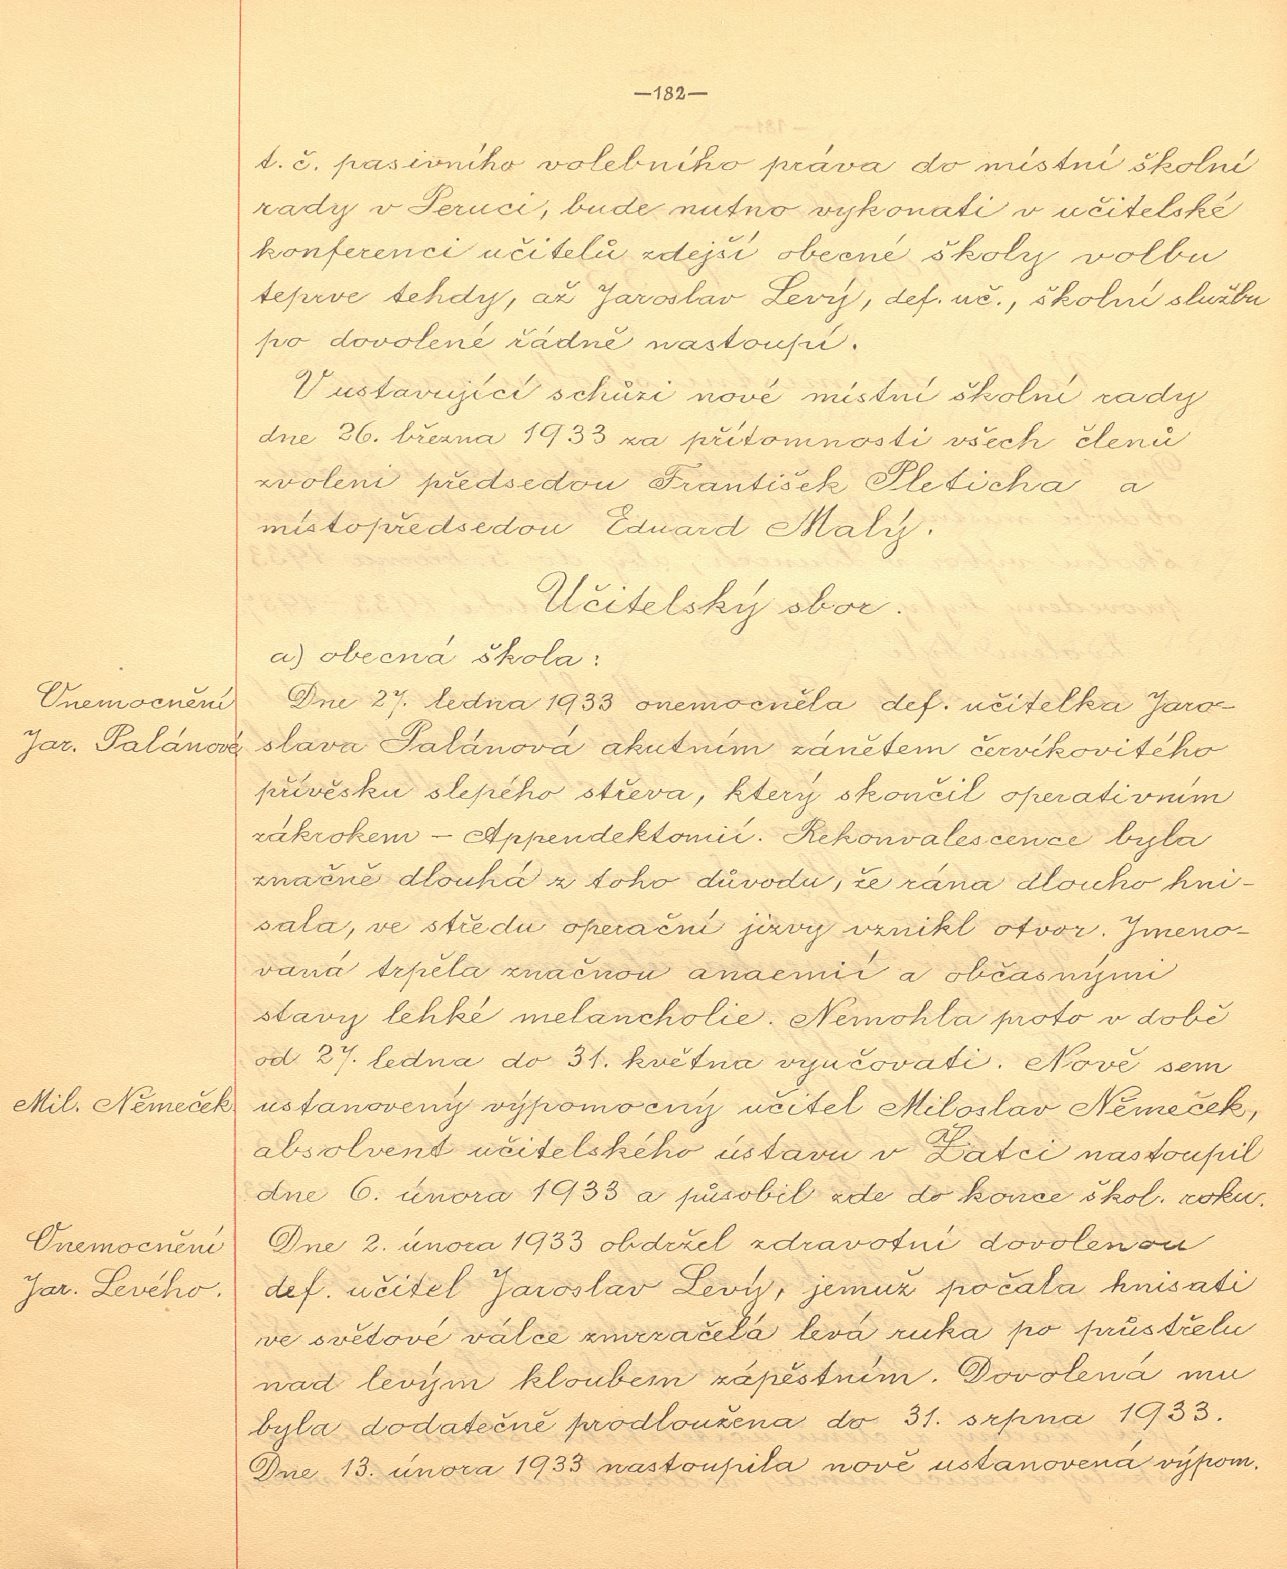 —182—
t. č. pasivního volebního práva do místní školní
rady v Peruci, bude nutno vykonati v učitelské
konferenci učitelů zdejší obecné školy volbu
teprve tehdy, až Jaroslav Levý, def. uč., školní službu
po dovolené řádně nastoupí.
V ustavující schůzi nové místní školní rady
dne 26. března 1933 za přítomnosti všech členů
zvoleni předsedou František Pleticha a
místopředsedou Eduard Malý.
Učitelský sbor.
a) obecná škola:
Onemocnění
Jar. Palánové
Dne 27. ledna 1933 onemocněla def. učitelka Jaro-
slava Palánová akutním zánětem červíkovitého
přívěsku slepého střeva, který skončil operativním
zákrokem – Appendektomií. Rekonvalescence byla
značně dlouhá z toho důvodu, že rána dlouho hni-
sala, ve středu operační jizvy vznikl otvor. Jmeno-
vaná trpěla značnou anaemií a občasnými
stavy lehké melancholie. Nemohla proto v době
od 27. ledna do 31. května vyučovati. Nově sem
Mil. Němeček
ustanovený výpomocný učitel Miloslav Němeček,
absolvent učitelského ústavu v Žatci nastoupil
dne 6. února 1933 a působil zde do konce škol. roku.
Onemocnění
Jar. Levého.
Dne 2. února 1933 obdržel zdravotní dovolenou
def. učitel Jaroslav Levý, jemuž počala hnisati
ve světové válce zmrzačelá levá ruka po průstřelu
nad levým kloubem zápěstním. Dovolená mu
byla dodatečně prodloužena do 31. srpna 1933.
Dne 13. února 1933 nastoupila nově ustanovená výpom.